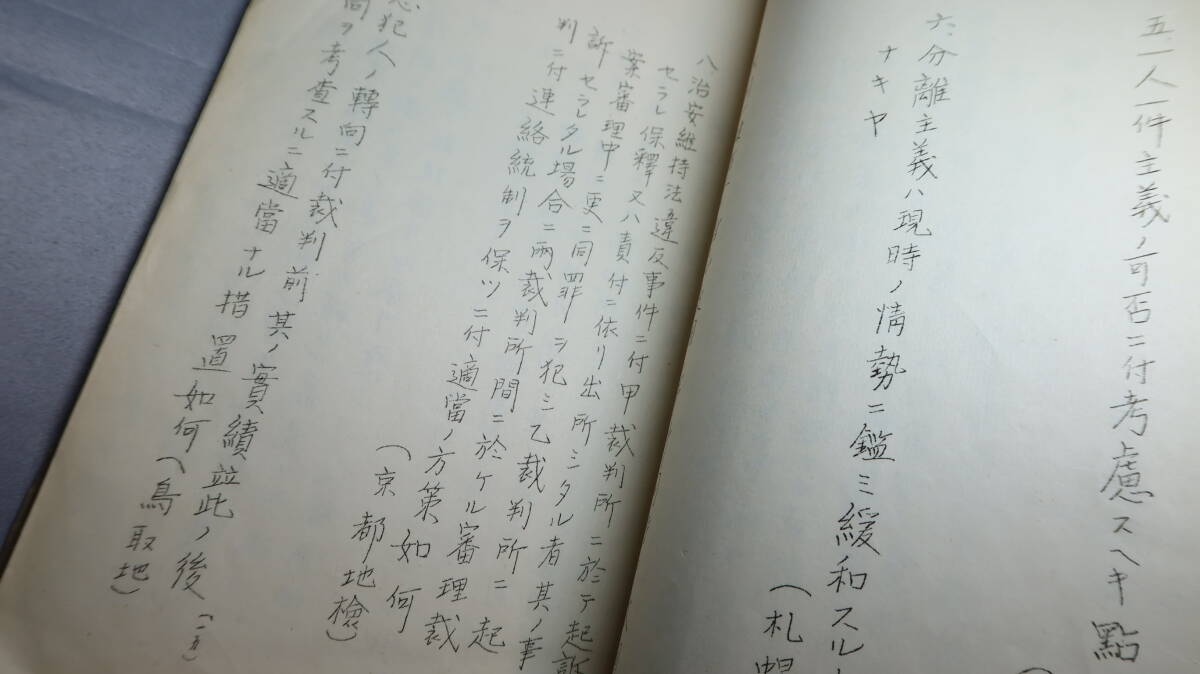 五、一人一件主義ノ可否ニ付考慮スヘキ點
六、分離主義ハ現時ノ情勢ニ鑑ミ緩和スル
ナキヤ
(札幌
八、治安維持法違反事件ニ付甲裁判所ニ於テ起訴
セラレ保釋又ハ責付ニ依リ出所シタル者其ノ事
案審理中ニ更ニ同罪ヲ犯シ乙裁判所ニ起
訴セラレタル場合ニ兩裁判所間ニ於ケル審理裁
判ニ付連絡統制ヲ保ツニ付適當ノ方策如何
(京都地檢)
犯人ノ轉向ニ付裁判前其ノ實績並此ノ後
ヲ考査スルニ適當ナル措置如何
(鳥取地)